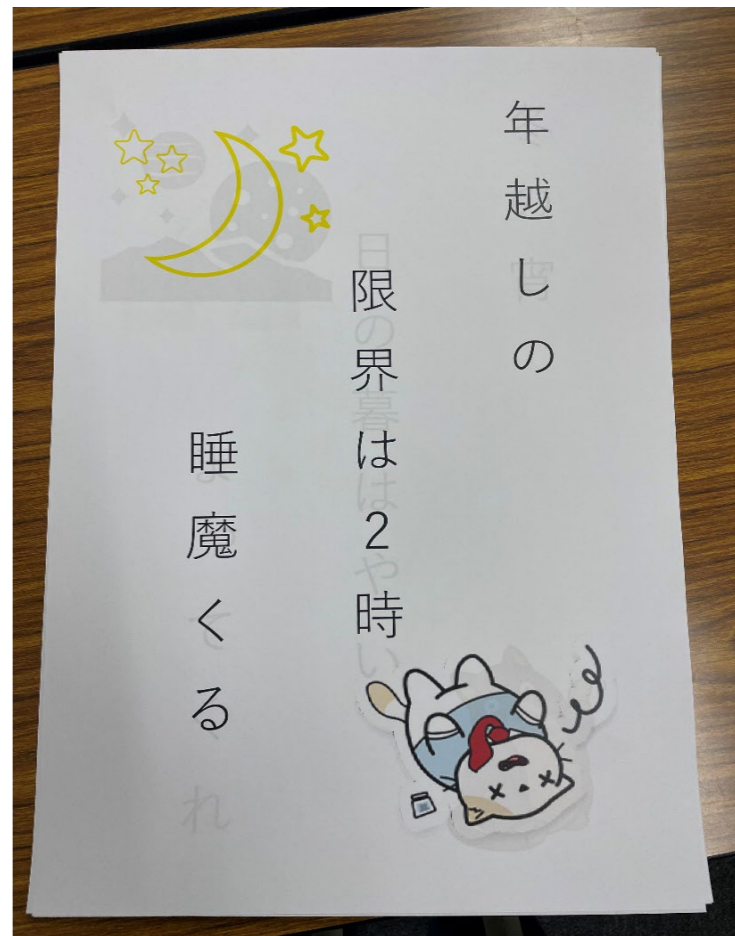 年越しの
限界は2時
睡魔くる